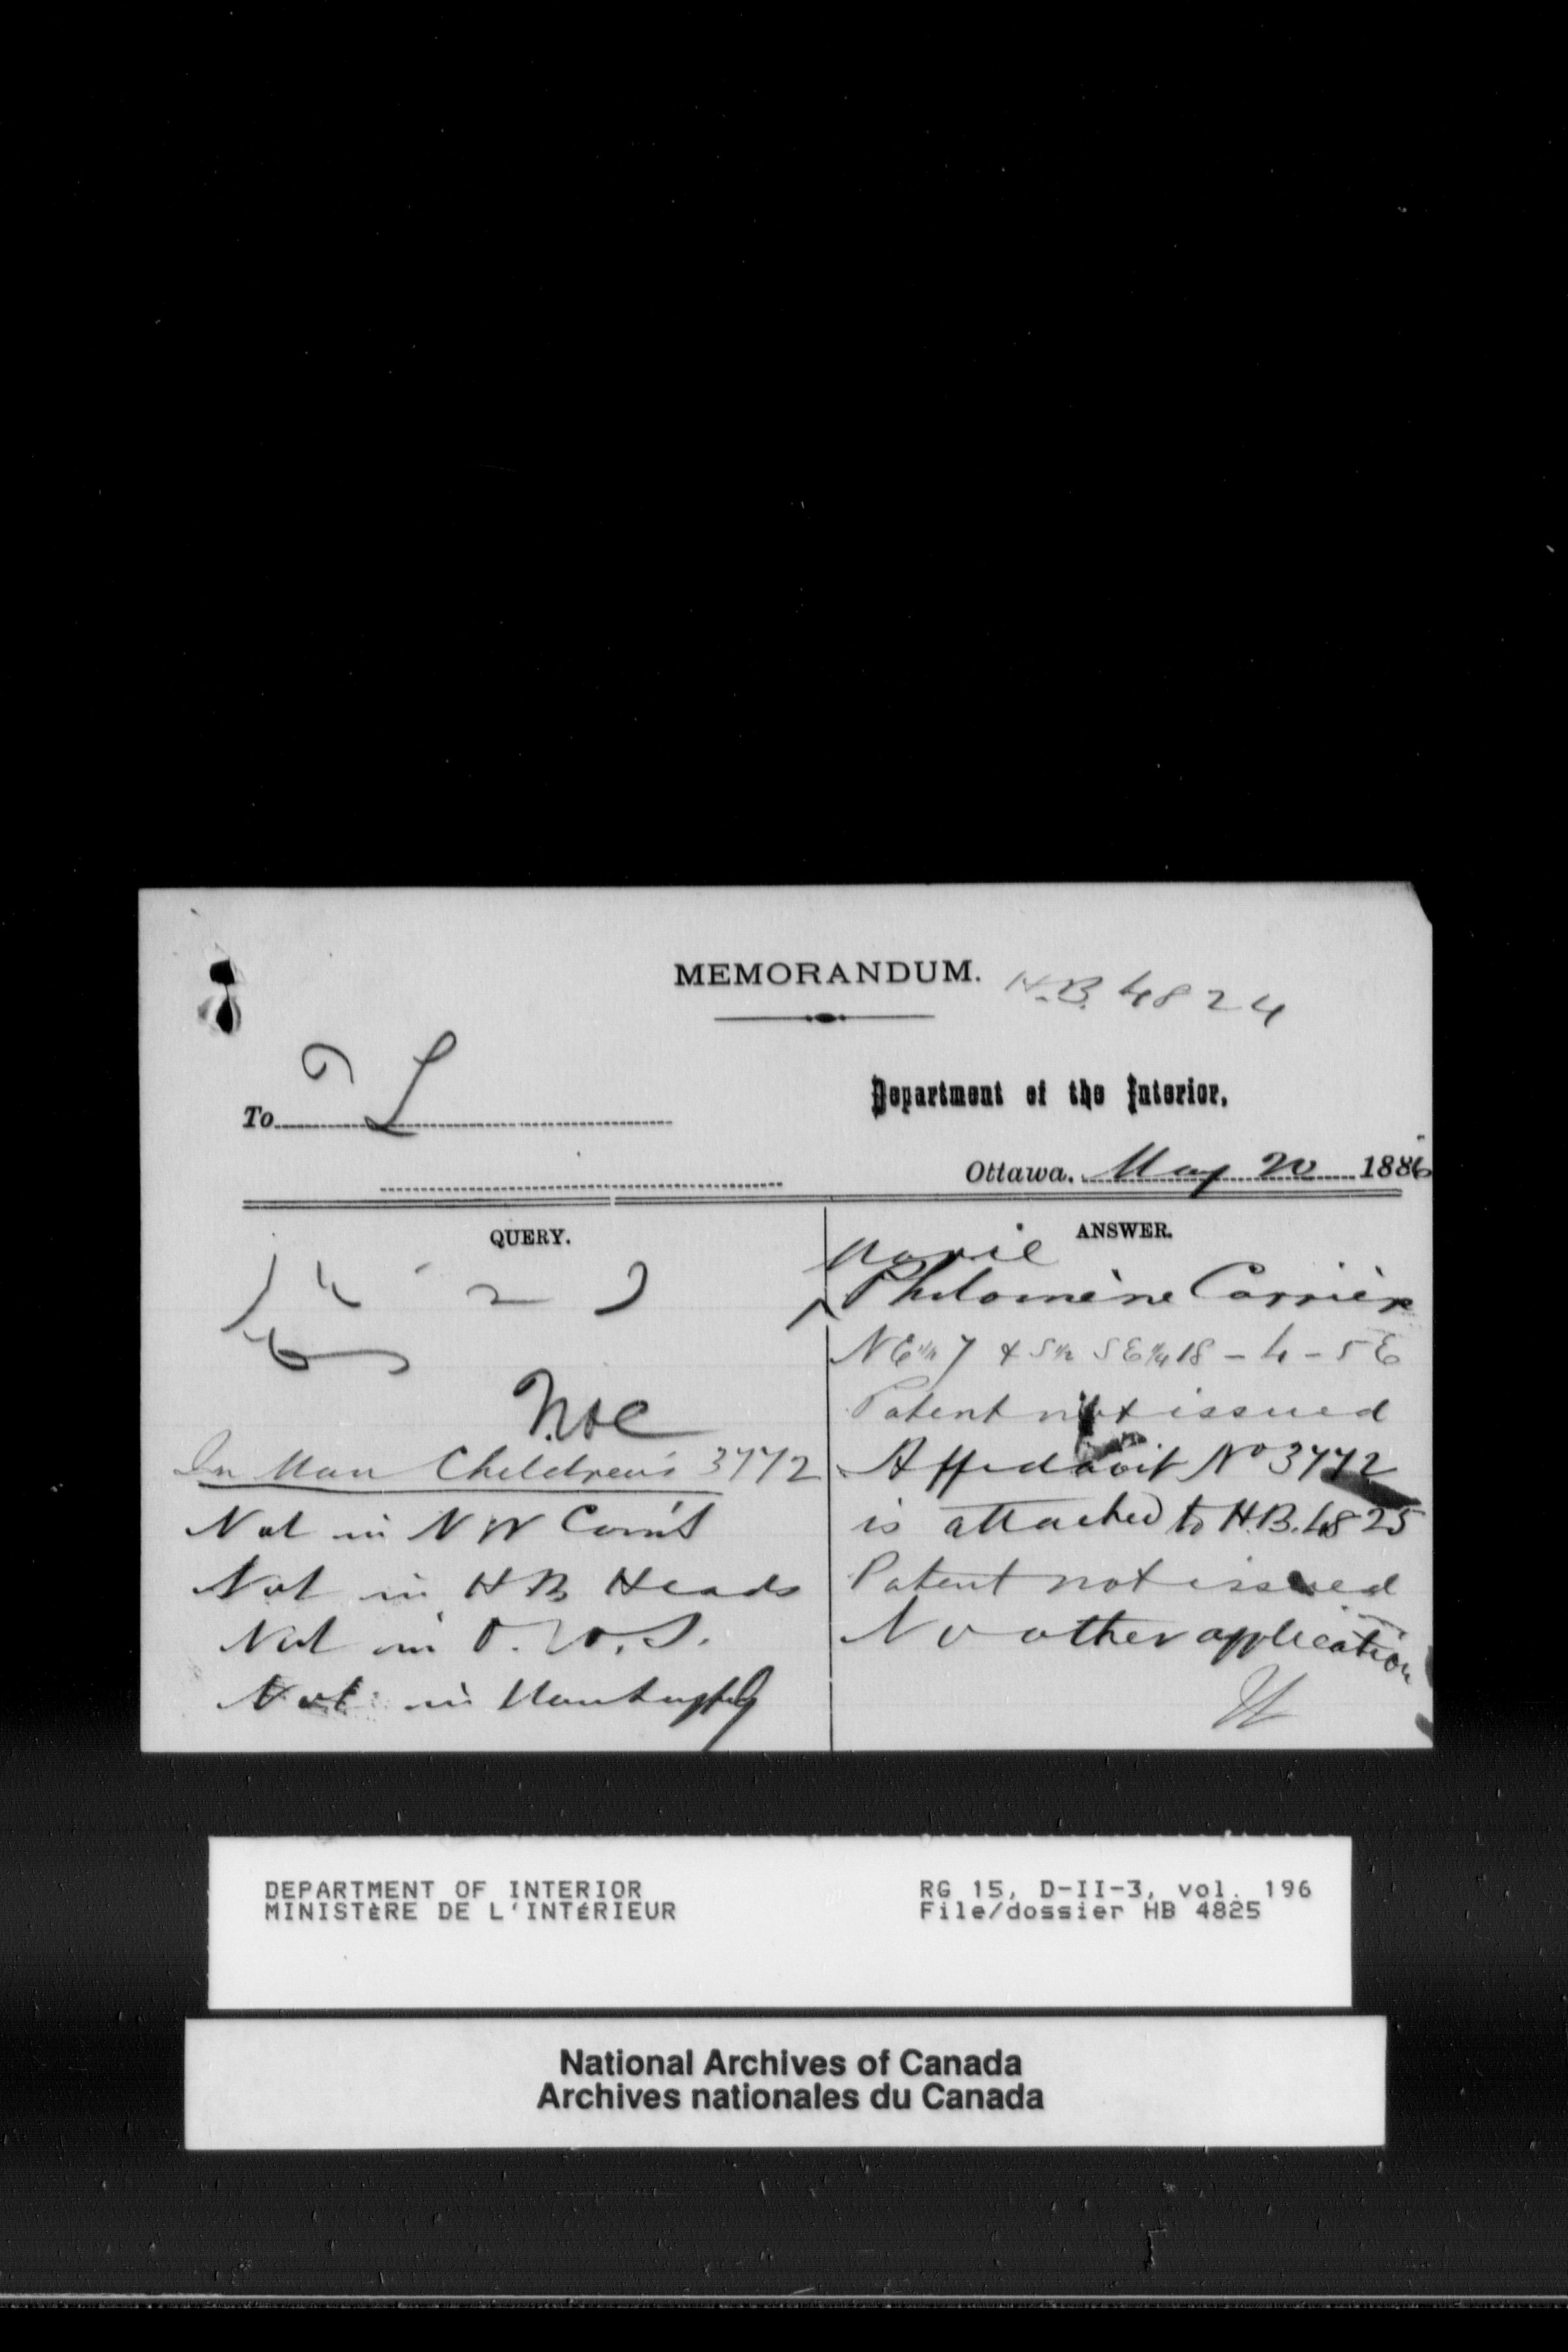 MEMORANDUM.
H.B. 4824
Department of the Interior.
To
Ottawa. May 20 1886
QUERY.
In Man Children's 3772
Not in N W Com't
Not in H B Heads
Not in O. W. S.
Not in
ANSWER.
Marie
^ Philomène Carrière
NE¼ 7 & S½ SE¼ 18 - 4 - 5 E
Patent not issued
Affidavit No 3772
is attached to H.B. 4825
Patent not issued
No other application
DEPARTMENT OF INTERIOR
MINISTÈRE DE L'INTÉRIEUR
RG 15, D-II-3, vol. 196
File/dossier HB 4825
National Archives of Canada
Archives nationales du Canada